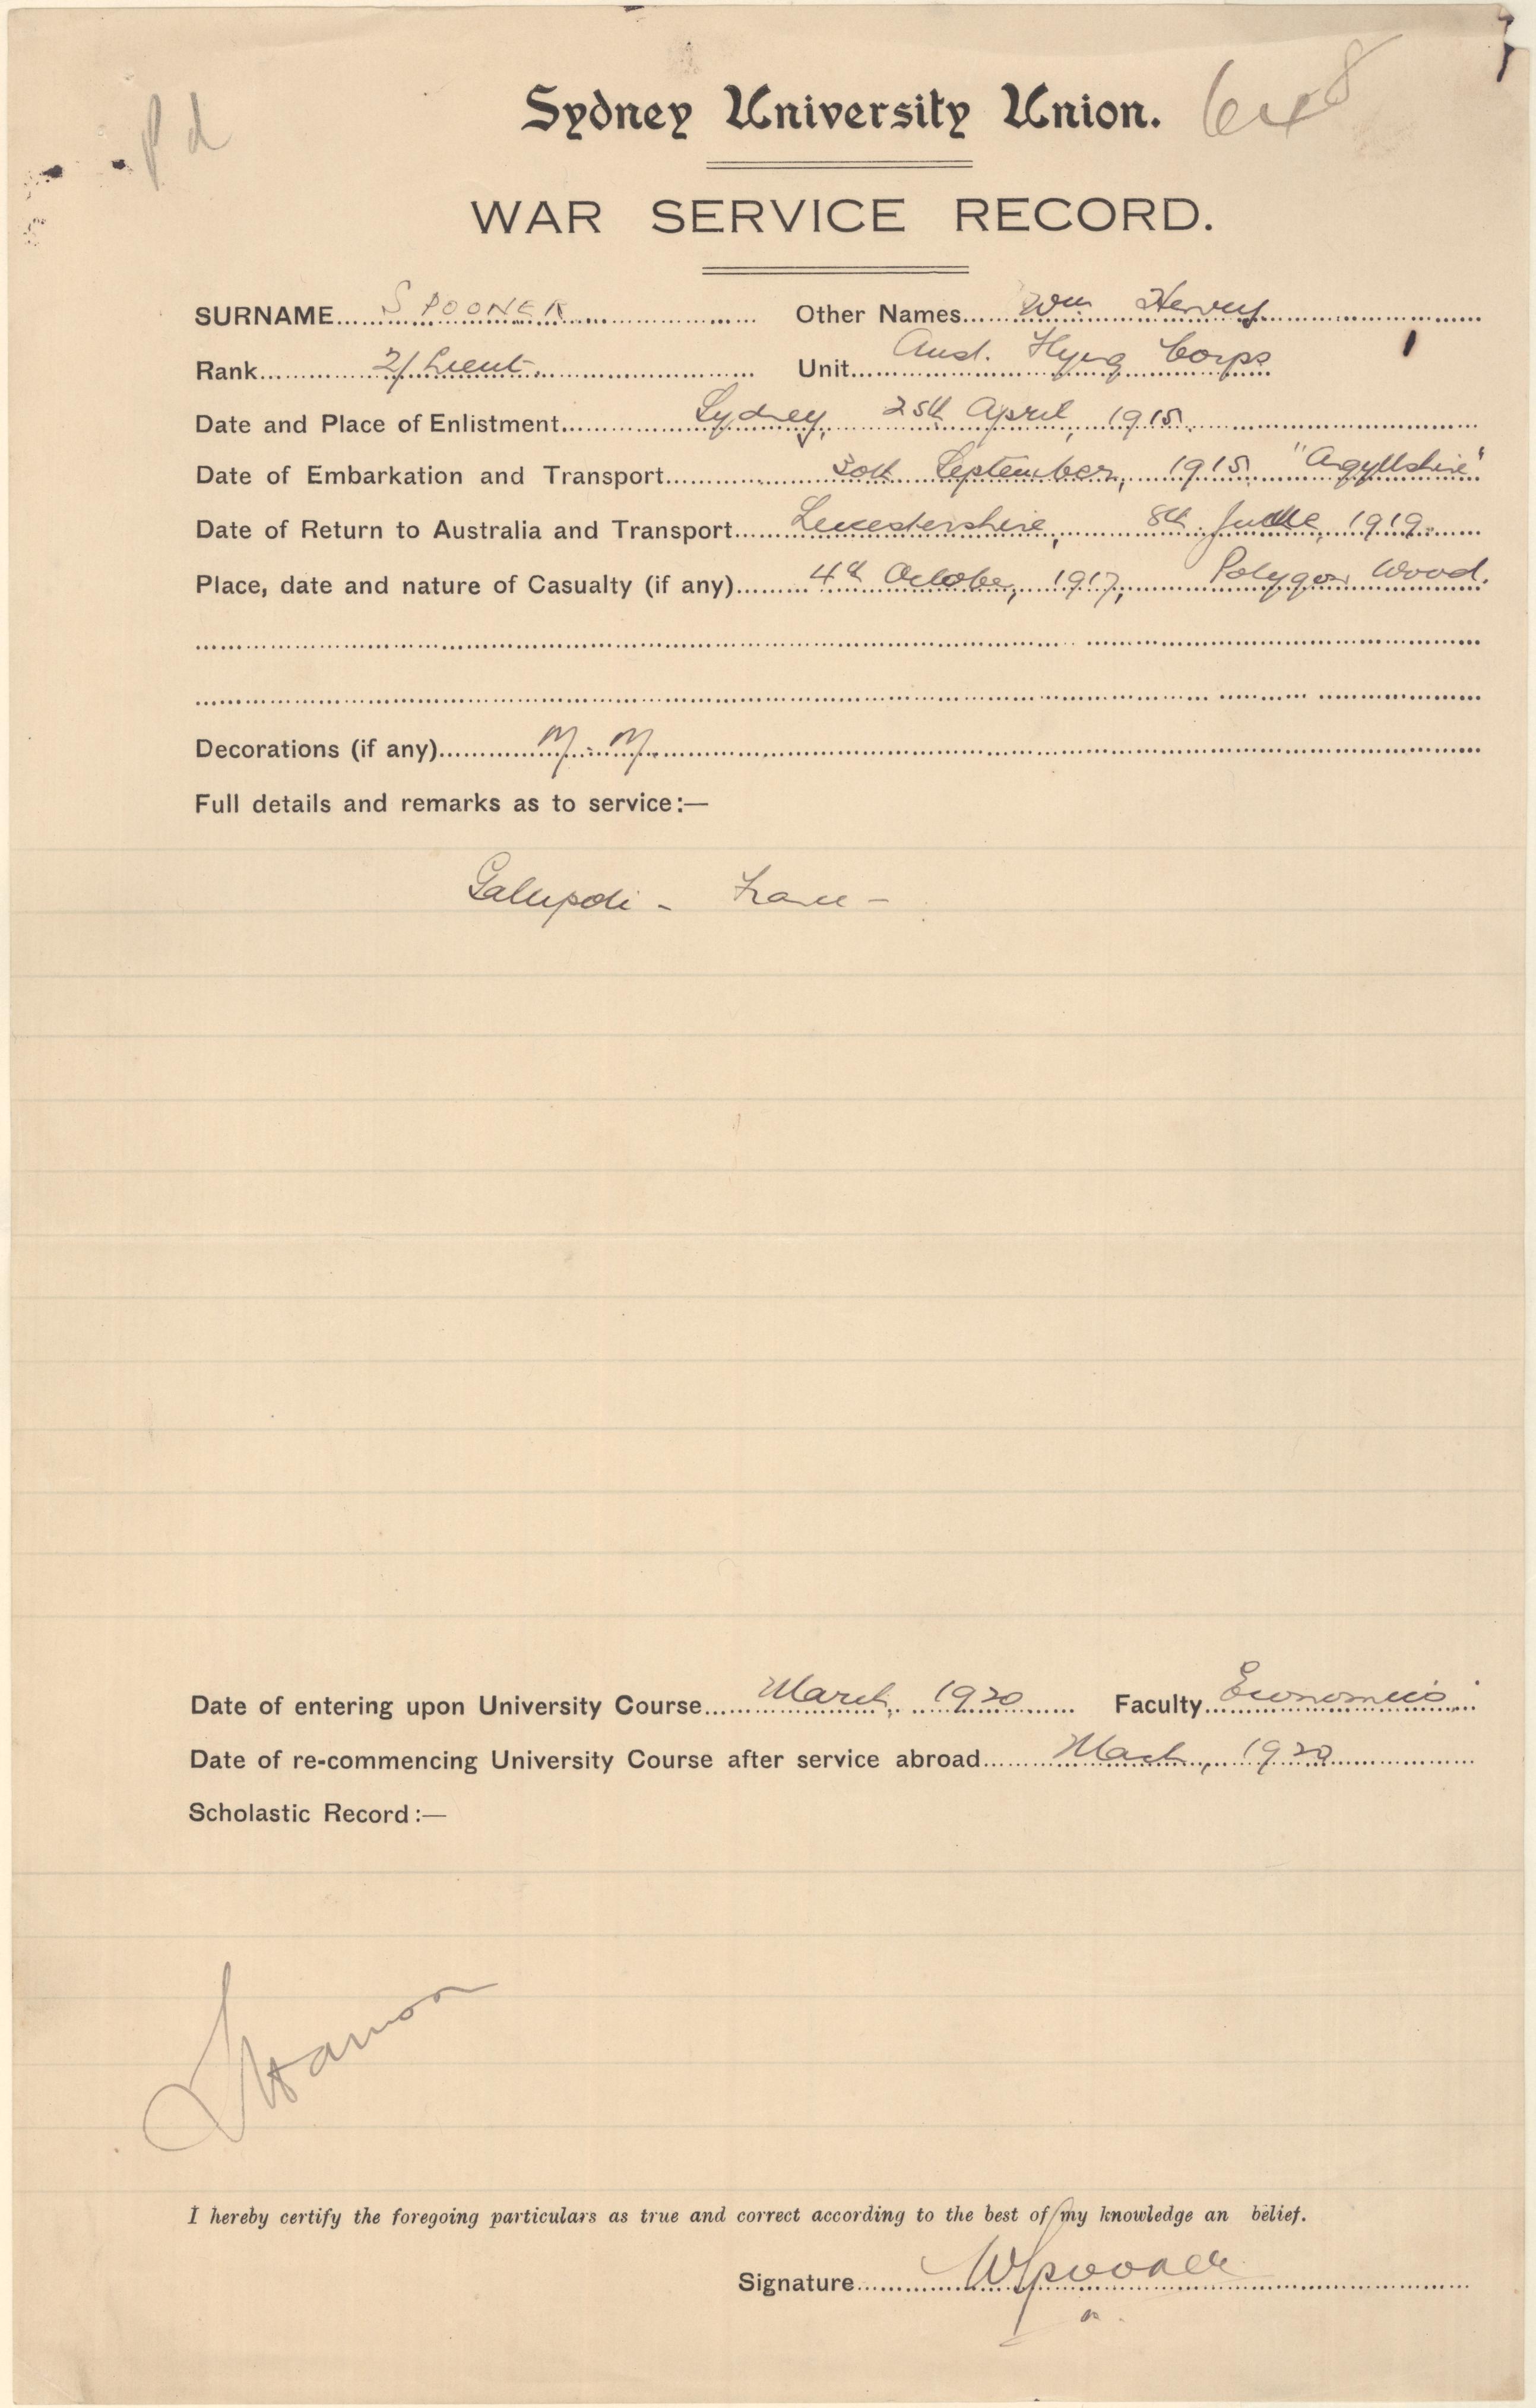 Sydney University Union.
WAR SERVICE RECORD.
SURNAME SPOONER Other Names Wm Hervey
Rank 2/Lieut. Unit Aust. Flying Corps
Date and Place of Enlistment Sydney, 25th April, 1915.
Date of Embarkation and Transport 30th September, 1915. "Argyllshire"
Date of Return to Australia and Transport Leicestershire, 8th 1919.
Place, date and nature of Casualty (if any) 4th October, 1917, Polygon Wood.
Decorations (if any) M.M.
Full details and remarks as to service:—
Gallipoli - France -
Date of entering upon University Course March, 1920 Faculty Economics
Date of re-commencing University Course after service abroad March, 1920
Scholastic Record:—
I hereby certify the foregoing particulars as true and correct according to the best of my knowledge an belief.
Signature WSpooner